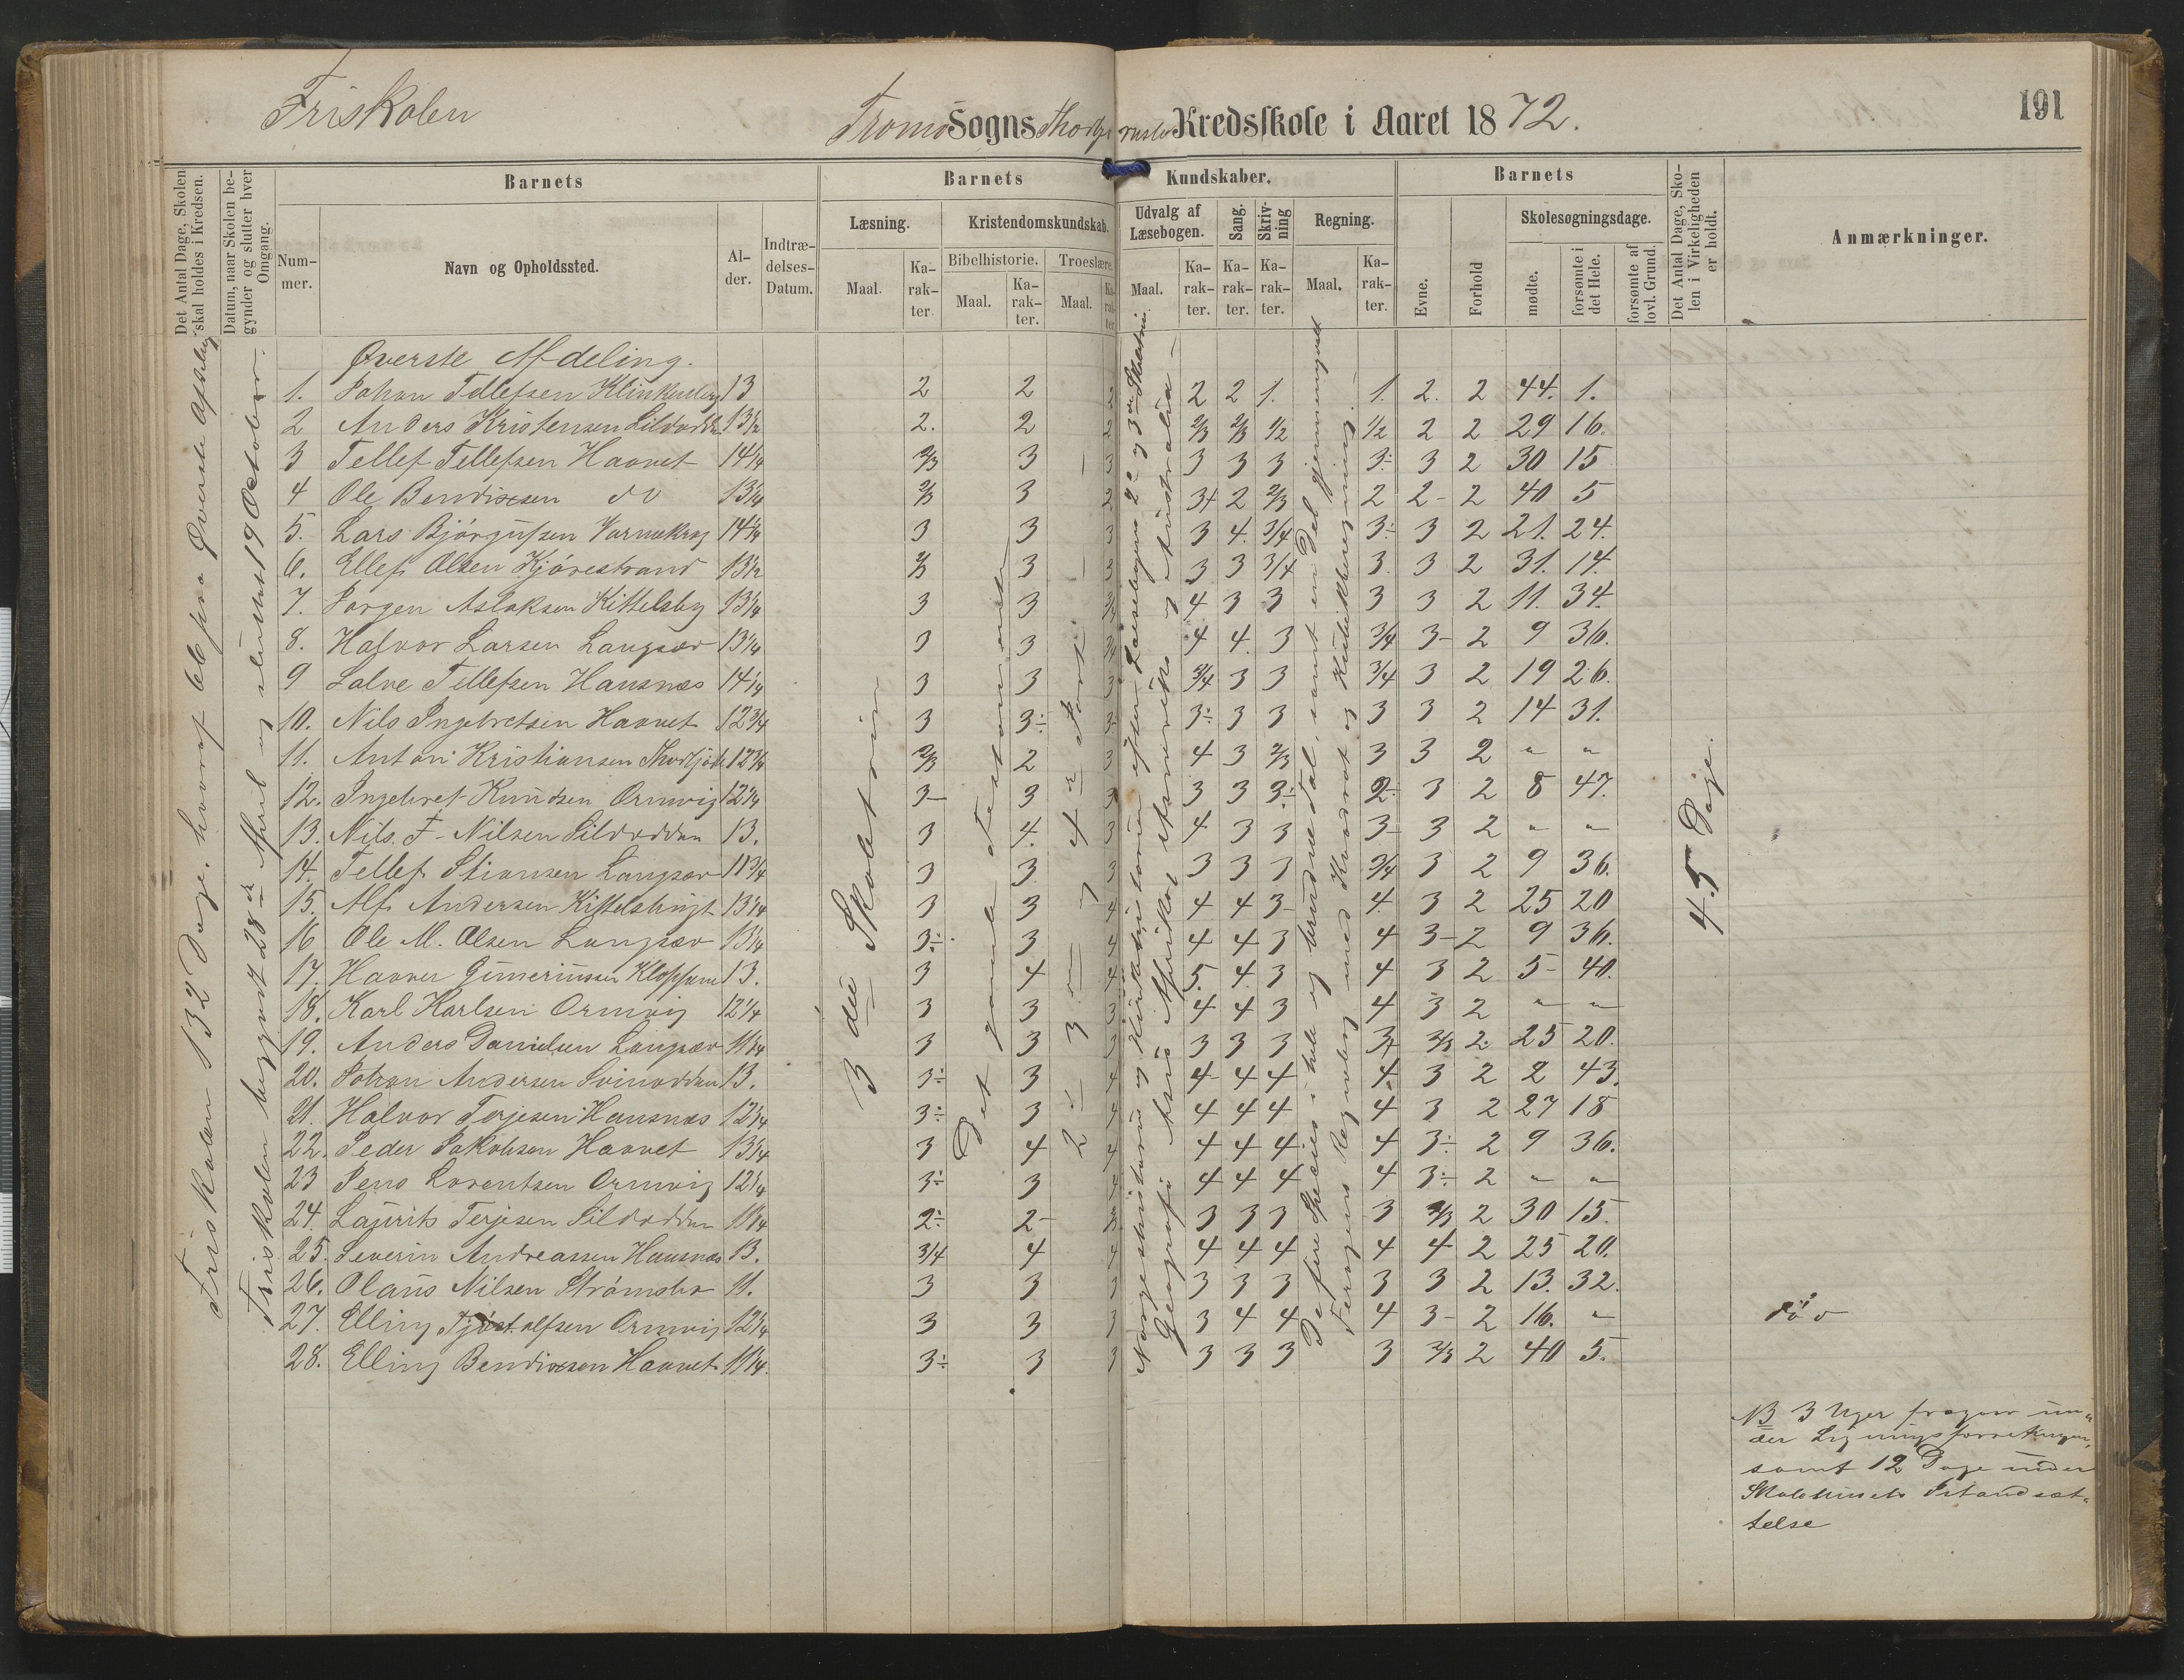 191
Friskolen
Tromø Sogns Kredsskole i Aaret 1872.
Det Antal Dage, Skolen skal holdes i Kredsen.
Datum, naar Skolen begynder og slutter hver Omgang.
Barnets
Barnets
Kundskaber.
Barnets
Det Antal Dage, Skolen i Virkeligheden er holdt.
Anmærkninger.
Nummer.
Navn og Opholdssted.
Alder.
Indtrædelses-Datum.
Læsning.
Kristendomskundskab.
Udvalg af Læsebogen.
Sang.
Skrivning
Regning.
Evne.
Forhold
Skolesøgningsdage.
Bibelhistorie.
Troeslære.
Maal.
Karakter.
Maal.
Karakter.
Maal.
Karakter
Maal.
Karakter.
Karakter.
Karakter.
Maal.
Karakter.
mødte.
forsømte i det Hele.
forsømte af lovl. Grund.
Øverste Afdeling.
1. Johan Tellefsen 13 2 2 2 2 2 1. 1. 2. 2 44. 1.
2 Anders Kristensen Sildodden 13½ 2. 2 2 2/3 2/3 1/2 1/2 2 2 29 16.
3 Tellef Tellefsen Haavet 14¼ 2/3 3 3 3 3 3 3÷ 3 2 30 15
4 Ole Bendixsen do 13¼ 2/3 3 2 3+ 2 2/3 2 2- 2 40 5
5. Lars 14¼ 3 3 3 3 4. 3/4 3÷ 3 2 21. 24.
6. Ellef Olsen Kjørestrand 13½ 2/3 3 3 3 3 3/4 3. 3 2 31. 14.
7. Jørgen Aslaksen Kittelsby 13¼ 3 3 3/4 4 3 3 3 3 2 11. 34.
8. Halvor Larsen Langsæv 13¼ 3 3 3/4 4 4. 3 3/4 3- 2 9 36.
9 Salve Tellefsen Hausnæs 14¼ 3 3 3 3/4 3 3 3/4 3 2 19 26.
10. Nils Ingebretsen Haavet 12¾ 3 3÷ 3 3÷ 3 3 3 3 2 14 31.
11. Anton Kristiansen 12¾ 2/3 2 3 4 3 2/3 3 3 2 " "
12. Ingebret Knudsen Ormvig 12¼ 3- 3 3 3 3 3÷ 2÷ 3 2 8 47.
13. Nils. F. Nilsen Sildodden 13. 3 4. 3 4 3 3 3- 3 2 " "
14. Tellef Stiansen Langsæv 11¾ 3 3 3 3 3 3 3/4 3 2 9 36.
15. Alf Andersen 13¼ 3 3 4 4 4 3- 4. 3 2 25 20
16 Ole M. Olsen Langsæv 13¼ 3÷ 3 4 4 4 3 4 3- 2 9 36.
17. Haaver 13. 3 4 4 5. 4. 3 4 3 2 5- 40.
18. Karl Karlsen Ormvig 12¼ 3 3 3 4 4 3 4 3 2 " "
19. Anders Danielsen Langsæv 11¼ 3 3 3 3 3 3 3 2/3 2. 25 20.
20. Johan Andersen Svinodden 13. 3÷ 3 4 4 4 4 4. 3 2 2 43.
21. Halvor Terjesen Hausnæs 12¾ 3÷ 3 4 4 4 4 4 3 2 27 18
22. Peder Jakobsen Haavet 13¼ 3 4 4 4 4 4. 4 3÷ 2 9 36.
23 Jens Lorentsen Ormvig 12¼ 3÷ 3 4 4 4 4 4 3÷ 2 " "
24. Laurits Terjesen Sildodden 11¼ 2÷ 2- 3 3 3 3 3 2/3 2 30 15.
25. Severin Andreassen Hausnæs 13. 3/4 4 4 4 4 4 4 4 2 25 20.
26. Olaus Nilsen 11. 3 3 3 3 3 3 3 3 2 13. 32.
27. Elling Ormvig 12¾ 3 3 3 3 4 4 4 3- 2 16. " død
28. Elling Bendixsen Haavet 11¼ 3÷ 3 3 3 3 3 3 2/3 2 40 5.
Friskolen 132 Dage, hvoraf øverste Afdeling
Friskolen begyndt 28de April og sluttet 19 October.
3die Skoletrin
Det gamle Testamente
2÷ 3 – 4de Part
Norgeshistorie og Kirkehistorie efter Læsebogens 2de og 3die Skoletrin
Geografi: Asia Afrika, Amerika og Australia
De fire Species i hele og brudne Tal, samt en Del gjennemgaaet
45 Dage.
NB 3 Uger un-
der
samt 12 Dage under
Skolehusets Istandsæt-
telse